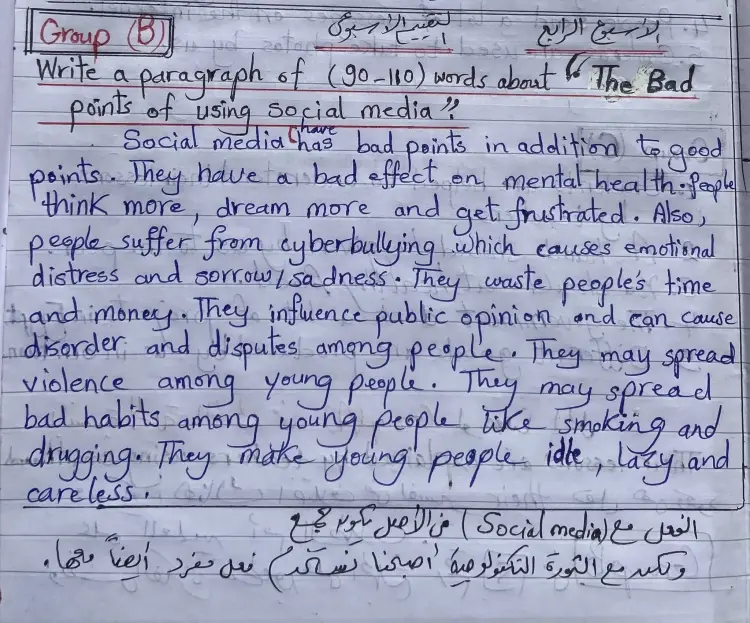 Group (B) لتقييم الأسبوعي الأسبوع الرابع
Write a paragraph of (90-110) words about "The Bad
points of using social media"
Social media (have has bad points in addition to good
points. They have a bad effect on mental health. People
think more, dream more and get frustrated. Also,
people suffer from cyberbullying which causes emotional
distress and sorrow/sadness. They waste people's time
and money. They influence public opinion and can cause
disorder and disputes among people. They may spread
violence among young people. They may spread
bad habits among young people like smoking and
drugging. They make young people idle, lazy and
careless.
الفعل مع (Social media) في الأصل يكون جمع
ولكن مع الثورة التكنولوجية أصبحنا نستخدم فعل مفرد أيضاً معها.